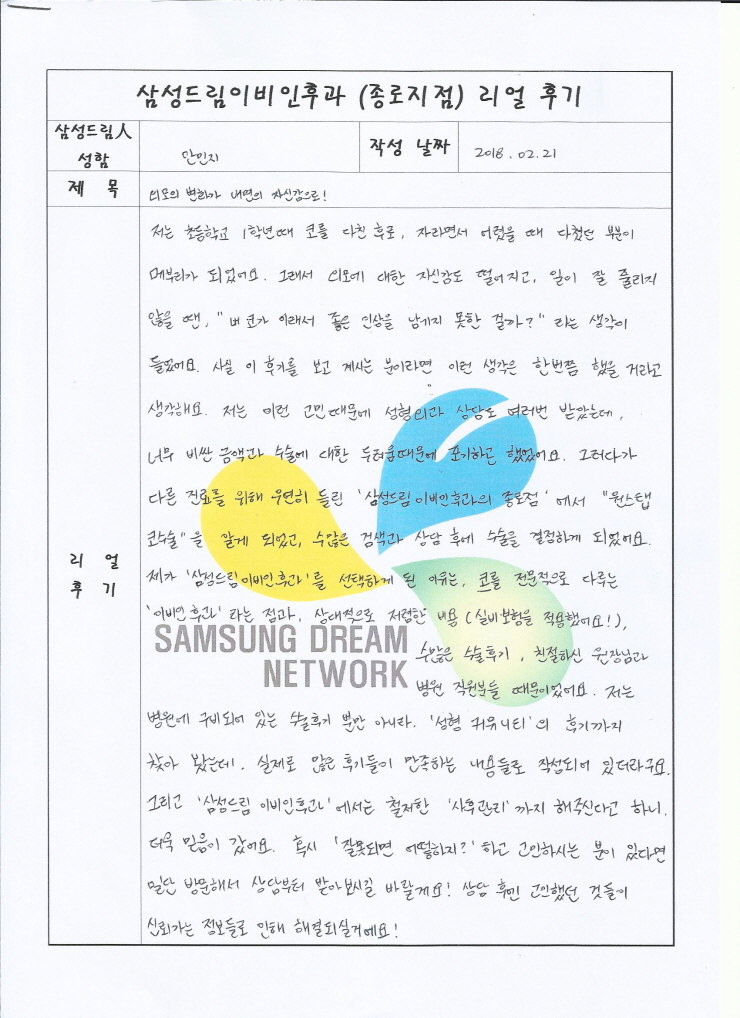 삼성드림이비인후과 (종로지점) 리얼 후기
삼성드림人 성함
안민지
작성 날짜
2018.02.21
제 목
외모의 변화가 내면의 자신감으로!
리 얼
후 기
저는 초등학교 1학년때 코를 다친 후로, 자라면서 어렸을 때 다쳤던 부분이
메부리가 되었어요. 그래서 외모에 대한 자신감도 떨어지고, 일이 잘 풀리지
않을 땐, "내 코가 이래서 좋은 인상을 남기지 못한 걸까?" 라는 생각이
들었어요. 사실 이 후기를 보고 계시는 분이라면 이런 생각은 한번쯤 했을 거라고
생각해요. 저는 이런 고민때문에 성형외과 상담도 여러번 받았는데,
너무 비싼 금액과 수술에 대한 두려움때문에 포기하곤 했었어요. 그러다가
다른 진료를 위해 우연히 들린 '삼성드림이비인후과의 종로점' 에서 "원스탭
코수술"을 알게 되었고, 수많은 검색과 상담 후에 수술을 결정하게 되었어요.
제가 '삼성드림이비인후과'를 선택하게 된 이유는, 코를 전문적으로 다루는
'이비인후과' 라는 점과, 상대적으로 저렴한 비용 (실비보험을 적용했어요!),
수많은 수술후기, 친절하신 원장님과
병원 직원분들 때문이었어요. 저는
SAMSUNG DREAM
NETWORK
병원에 구비되어 있는 수술후기 뿐만 아니라. '성형 커뮤니티'의 후기까지
찾아 봤는데. 실제로 많은 후기들이 만족하는 내용들로 작성되어 있더라구요.
그리고 '삼성드림 이비인후과'에서는 철저한 '사후관리' 까지 해주신다고 하니.
더욱 믿음이 갔어요. 혹시 '잘못되면 어떻하지?' 하고 고민하시는 분이 있다면
일단 방문해서 상담부터 받아보시길 바랄게요! 상담 후엔 고민했던 것들이
신뢰가는 정보들로 인해 해결되실거에요!